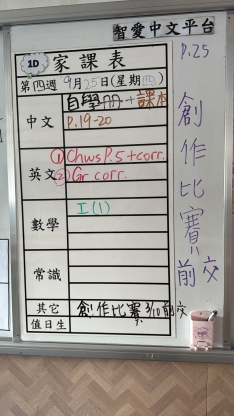 智愛中文平台
1D 家課表
第四週 9月25日(星期四)
中文 自學冊+課本
P.19-20
英文 ① Chws P.5 + corr.
② Gr corr.
數學 I(1)
常識
其它 創作比賽 3/10前交
值日生
P.25
創作比賽
前交